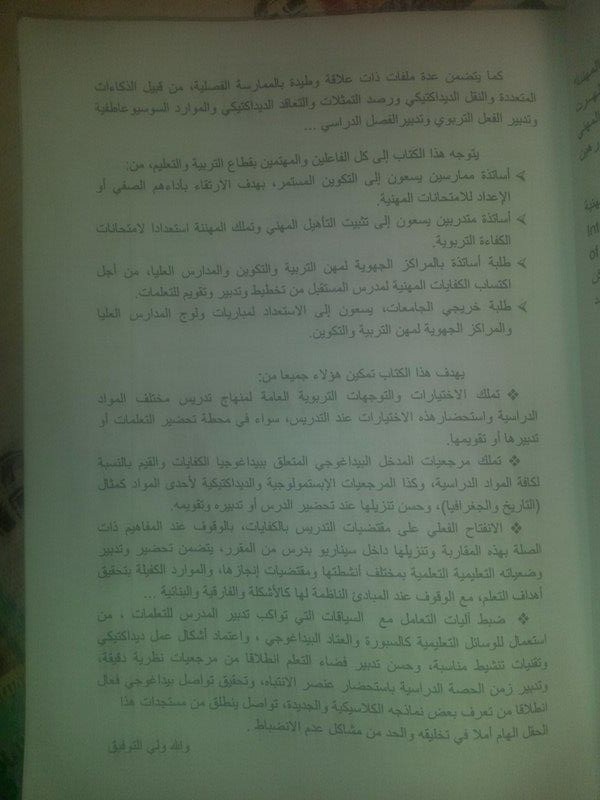 كما يتضمن عدة ملفات ذات علاقة وطيدة بالممارسة الفصلية، من قبيل الذكاءات
المتعددة والنقل الديداكتيكي ورصد التمثلات والتعاقد الديداكتيكي والموارد السوسيوعاطفية
وتدبير الفعل التربوي وتدبير الفصل الدراسي ...
يتوجه هذا الكتاب إلى كل الفاعلين والمهتمين بقطاع التربية والتعليم، من:
➢ أساتذة ممارسين يسعون إلى التكوين المستمر، بهدف الارتقاء بأداءهم الصفي أو
الإعداد للامتحانات المهنية.
➢ أساتذة متدربين يسعون إلى تثبيت التأهيل المهني وتملك المهننة استعدادا لامتحانات
الكفاءة التربوية.
➢ طلبة أساتذة بالمراكز الجهوية لمهن التربية والتكوين والمدارس العليا، من أجل
اكتساب الكفايات المهنية لمدرس المستقبل من تخطيط وتدبير وتقويم للتعلمات.
➢ طلبة خريجي الجامعات، يسعون إلى الاستعداد لمباريات ولوج المدارس العليا
والمراكز الجهوية لمهن التربية والتكوين.
يهدف هذا الكتاب تمكين هؤلاء جميعا من:
❖ تملك الاختيارات والتوجهات التربوية العامة لمنهاج تدريس مختلف المواد
الدراسية واستحضار هذه الاختيارات عند التدريس، سواء في محطة تحضير التعلمات أو
تدبيرها أو تقويمها.
❖ تملك مرجعيات المدخل البيداغوجي المتعلق ببيداغوجيا الكفايات والقيم بالنسبة
لكافة المواد الدراسية، وكذا المرجعيات الإبستمولوجية والديداكتيكية لأحدى المواد كمثال
(التاريخ والجغرافيا)، وحسن تنزيلها عند تحضير الدرس أو تدبيره وتقويمه.
❖ الانفتاح الفعلي على مقتضيات التدريس بالكفايات، بالوقوف عند المفاهيم ذات
الصلة بهذه المقاربة وتنزيلها داخل سيناريو بدرس من المقرر، يتضمن تحضير وتدبير
وضعياته التعليمية التعلمية بمختلف أنشطتها ومقتضيات إنجازها، والموارد الكفيلة بتحقيق
أهداف التعلم، مع الوقوف عند المبادئ الناظمة لها كالأشكلة والفارقية والبنائية ...
❖ ضبط آليات التعامل مع السياقات التي تواكب تدبير المدرس للتعلمات ، من
استعمال للوسائل التعليمية كالسبورة والعتاد البيداغوجي ، واعتماد أشكال عمل ديداكتيكي
وتقنيات تنشيط مناسبة، وحسن تدبير فضاء التعلم انطلاقا من مرجعيات نظرية دقيقة،
وتدبير زمن الحصة الدراسية باستحضار عنصر الانتباه، وتحقيق تواصل بيداغوجي فعال
انطلاقا من تعرف بعض نماذجه الكلاسيكية والجديدة، تواصل ينطلق من مستجدات هذا
الحقل الهام أملا في تخليقه والحد من مشاكل عدم الانضباط .
والله ولي التوفيق